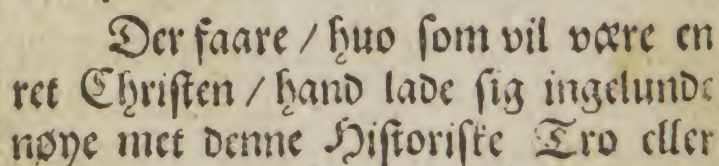 Der faare / huo som vil være en
ret Christen / hand lade sig ingelunde
nøye met denne Historiske Tro eller